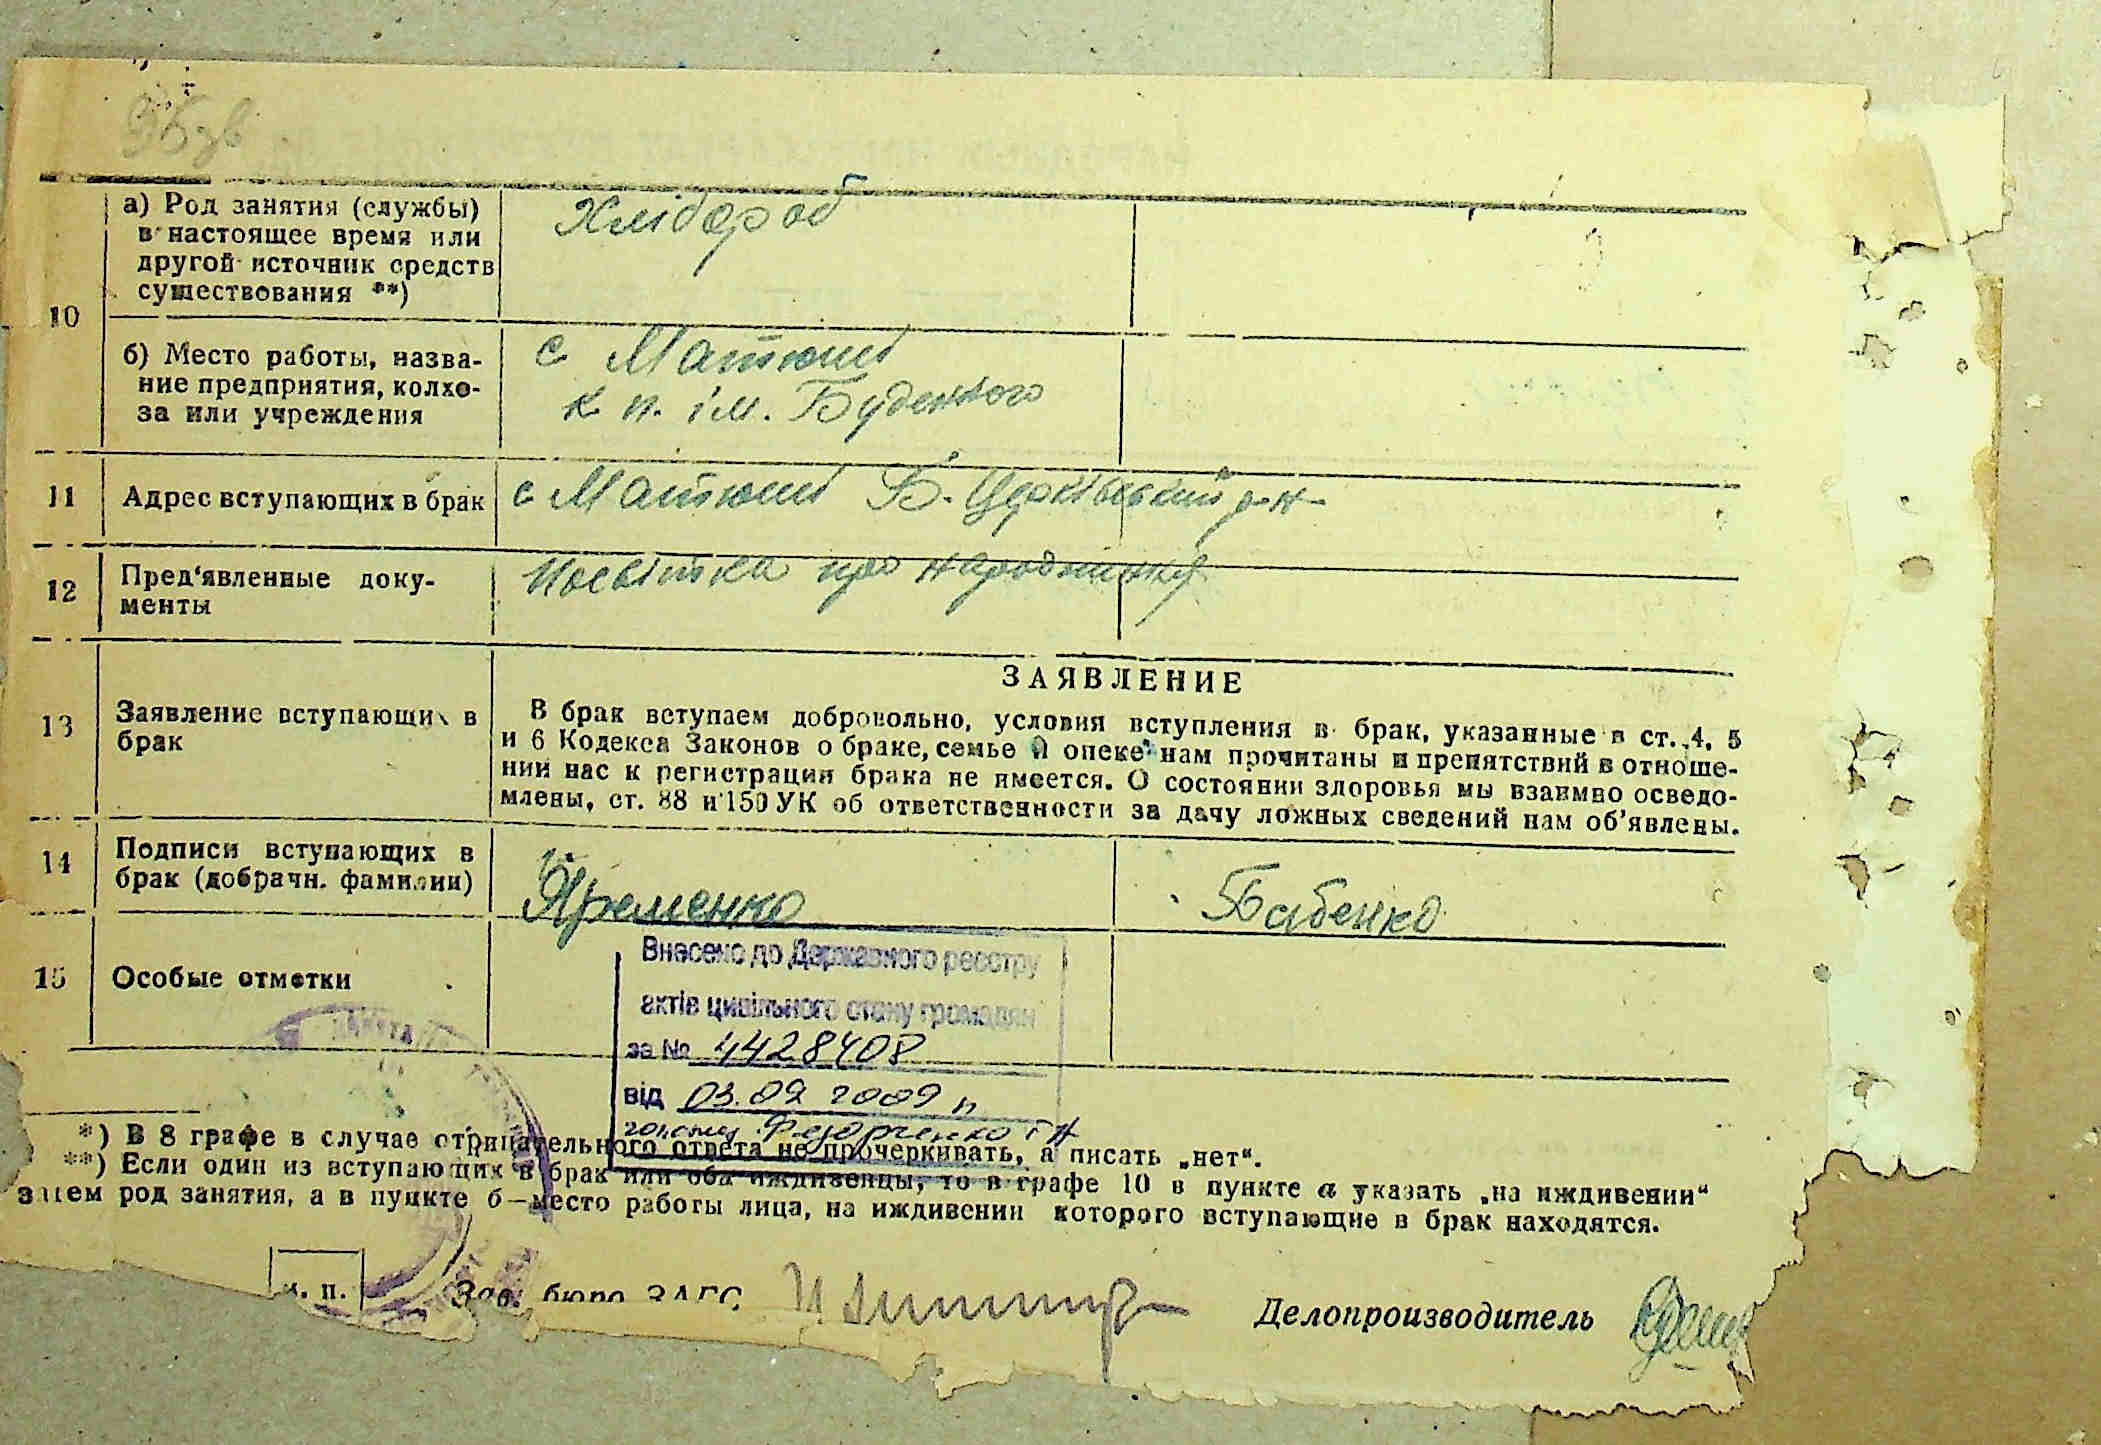 36зв
10
а) Род занятия (службы)
в настоящее время или
другой источник средств
существования **)
Хлібороб
б) Место работы, назва-
ние предприятия, колхо-
за или учреждения
с Матюші
к п. ім. Буденного
11
Адрес вступающих в брак
с Матюші Б. Церківський р-н
12
Пред'явленные доку-
менты
Посвітка про народжен
13
Заявление вступающих в
брак
ЗАЯВЛЕНИЕ
В брак вступаем добровольно, условия вступления в брак, указанные в ст. 4, 5
и 6 Кодекса Законов о браке, семье и опеке нам прочитаны и препятствий в отноше-
нии нас к регистрации брака не имеется. О состоянии здоровья мы взаимно осведо-
млены, ст. 88 и 150 УК об ответственности за дачу ложных сведений нам об'явлены.
14
Подписи вступающих в
брак (добрачн. фамилии)
Яременко
Бабенко
15
Особые отметки
Внесено до Державного реєстру
актів цивільного стану громадян
за № 4428408
від 03.09 2009 р
*) В 8 графе в случае отрицательного ответа не прочеркивать, а писать „нет“.
**) Если один из вступающих в брак или оба иждивенцы, то в графе 10 в пункте а указать „на иждивении“
затем род занятия, а в пункте б—место работы лица, на иждивении которого вступающие в брак находятся.
м. п.
Зав. бюро ЗАГС
Делопроизводитель